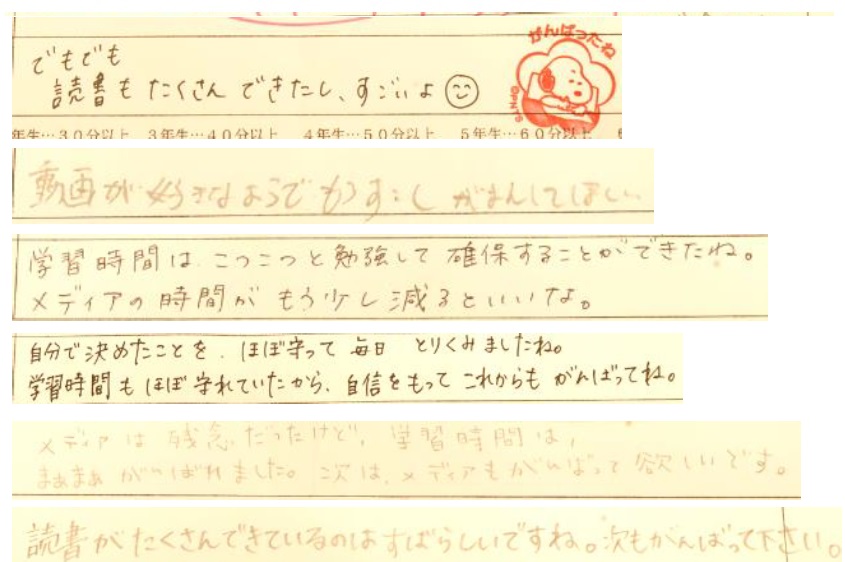 でもでも
読書もたくさんできたし、すごいよ
がんばったね
年生…30分以上 3年生…40分以上 4年生…50分以上 5年生…60分以上
動画が好きなようでもう少しがまんしてほしい
学習時間は、こつこつと勉強して確保することができたね。
メディアの時間がもう少し減るといいな。
自分で決めたことを、ほぼ守って毎日とりくみましたね。
学習時間もほぼ守れていたから、自信をもってこれからもがんばってね。
メディアは残念だったけど、学習時間は、
まぁまぁがんばれました。次は、メディアもがんばって欲しいです。
読書がたくさんできているのはすばらしいですね。次もがんばって下さい。